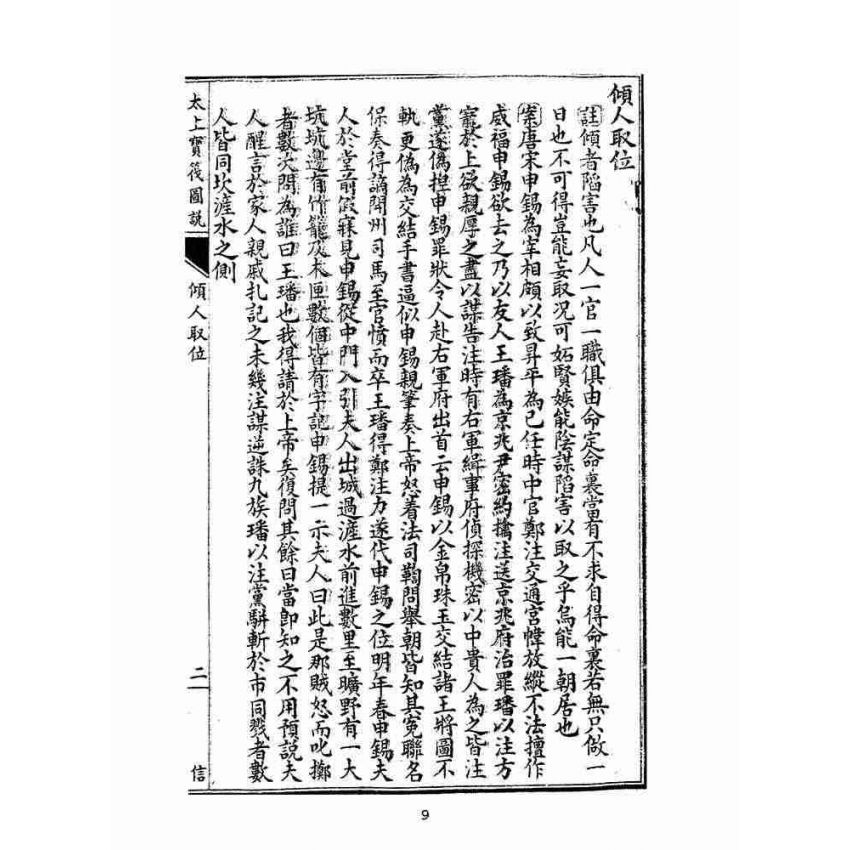 傾人取位
註傾者陷害也凡人一官一職俱由命定命裏當有不求自得命裏若無只做一
日也不可得豈能妄取況可妬賢嫉能陰謀陷害以取之乎烏能一朝居也
案唐宋申錫為宰相頗以致昇平為己任時中官鄭注交通宮幃放縱不法擅作
威福申錫欲去之乃以友人王璠為京兆尹密約擒注送京兆府治罪璠以注方
寵於上欲親厚之盡以謀告注時有右軍緝事府偵探機密以中貴人為之皆注
黨遂偽揑申錫罪狀令人赴右軍府出首云申錫以金帛珠玉交結諸王將圖不
軌更偽為交結手書逼似申錫親筆奏上帝怒着法司鞫問舉朝皆知其冤聯名
保奏得謫開州司馬至官憤而卒王璠得鄭注力遂代申錫之位明年春申錫夫
人於堂前假寐見申錫從中門入引夫人出城過滻水前進數里至曠野有一大
坑坑邊有竹籠及木匣數個皆有字記申錫提一示夫人曰此是那賊怒而叱擲
者數次問為誰曰王璠也我得請於上帝矣復問其餘曰當即知之不用預說夫
人醒言於家人親戚扎記之未幾注謀逆誅九族璠以注黨駢斬於市同戮者數
人皆同坎滻水之側
太上寶筏圖說
傾人取位
二
信
9